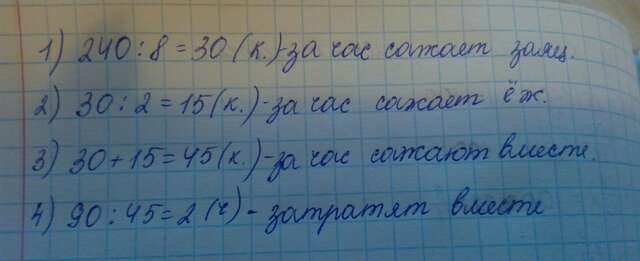 1) 240:8=30(к.)-за час сажает заяц.
2) 30:2=15(к.)-за час сажает ёж.
3) 30+15=45(к.)-за час сажают вместе.
4) 90:45=2(ч)- затратят вместе